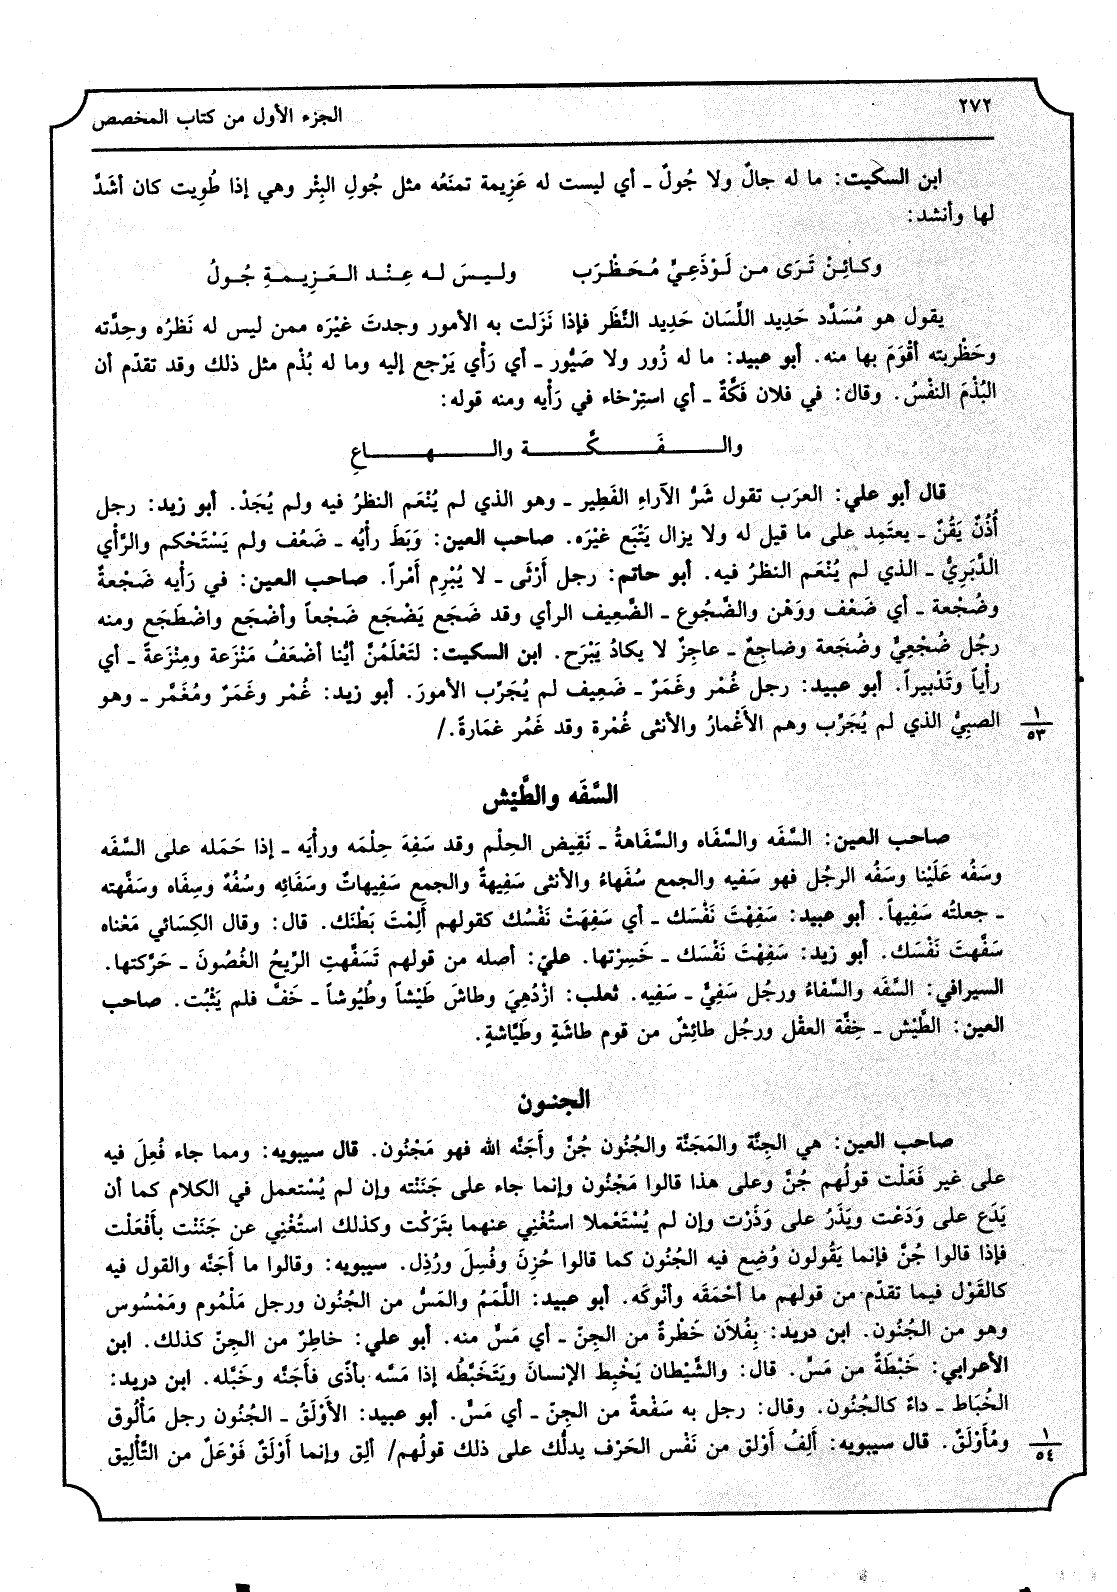 ٢٧٢
الجزء الأول من كتاب المخصص
ابن السكيت: ما له جالٌ ولا جُولٌ ـ أي ليست له عَزِيمة تمنَعُه مثل جُولِ البِئْر وهي إذا طُوِيت كان أشَدَّ
لها وأنشد:
وكـائِنْ تَـرَى مـن لَـوْذَعِـيٍّ مُـحَـظْـرَب ولـيـسَ لـه عِـنْـد الـعَـزِيـمـةِ جُـولُ
يقول هو مُسَدَّد حَدِيد اللسَان حَدِيد النَّظَر فإذا نَزَلت به الأمور وجدتَ غيْرَه ممن ليس له نَظرُه وحِدَّته
وحَظْربته أقْوَمَ بها منه. أبو عبيد: ما له زُور ولا صَيُّور ـ أي رَأْي يَرْجع إليه وما له بُذْم مثل ذلك وقد تقدّم أن
البُذْمَ النفْسُ. وقال: في فلان فَكَّةٌ ـ أي استِرْخاء في رَأْيه ومنه قوله:
والـــفَـــكَّـــة والـــهـــاعِ
قال أبو علي: العرَب تقول شَرُّ الآراءِ الفَطِير ـ وهو الذي لم يُنْعَم النظرُ فيه ولم يُجَدْ. أبو زيد: رجل
أُذُنٌ يَقُنٌ ـ يعتَمِد على ما قيل له ولا يزال يَتْبَع غيْرَه. صاحب العين: وَبَطَ رأيُه ـ ضَعُف ولم يَسْتَحْكم والرَّأي
الدَّبَرِيُّ ـ الذي لم يُنْعَم النظرُ فيه. أبو حاتم: رجل أَرْثَى ـ لا يُبْرِم أَمْراً. صاحب العين: في رَأيه ضَجْعةٌ
وضُجْعة ـ أي ضَعْف ووَهْن والضَّجُوع ـ الضَّعِيف الرأي وقد ضَجَع يَضْجَع ضَجْعاً وأضْجَع واضْطَجَع ومنه
رجُل ضُجْعِيٌّ وضُجَعة وضاجِعٌ ـ عاجِزٌ لا يكادُ يَبْرَح. ابن السكيت: لتَعْلَمُنَّ أيُّنا أضْعَفُ مَنْزَعة ومِنْزَعةً ـ أي
رأْياً وتَدْبيراً. أبو عبيد: رجل غُمْر وغَمَرٌ ـ ضَعِيف لم يُجَرِّب الأمورَ. أبو زيد: غُمْر وغَمَرٌ ومُغَمَّر ـ وهو
الصبِيُّ الذي لم يُجَرِّب وهم الأَغْمارُ والأنثى غُمْرة وقد غَمُر غمَارةً./
١
٥٣
السَّفَه والطَّيْش
صاحب العين: السَّفَه والسَّفَاه والسَّفَاهةُ ـ نَقِيض الحِلْم وقد سَفِهَ حِلْمَه ورأْيَه ـ إذا حَمَله على السَّفَه
وسَفُه عَلَيْنا وسَفُه الرجُل فهو سَفيه والجمع سُفَهاءُ والأنثى سَفِيهةٌ والجمع سَفِيهاتٌ وسَفَائِه وسُفُهٌ وسِفَاه وسَفَّهته
ـ جعلتُه سَفِيهاً. أبو عبيد: سَفِهْتَ نَفْسَك ـ أي سَفِهَتْ نَفْسُك كقولهم أَلِمْتَ بَطْنَك. قال: وقال الكِسَائي مَعْناه
سَفَّهتَ نَفْسَك. أبو زيد: سَفِهْتَ نَفْسَك ـ خَسِرْتها. علي: أصله من قولهم تَسَفَّهتِ الرِّيحُ الغُصُونَ ـ حَرَّكتها.
السيرافي: السَّفَه والسَّفاءُ ورجُل سَفِيٌّ ـ سَفِيه. ثعلب: ازْدُهِيَ وطاشَ طَيْشاً وطُيُوشاً ـ خَفَّ فلم يَثْبُت. صاحب
العين: الطَّيْش ـ خِفَّة العقْل ورجُل طائِشٌ من قوم طاشَةٍ وطَيَّاشةٍ.
الجنون
صاحب العين: هي الجِنَّة والمَجَنَّة والجُنُون جُنَّ وأَجَنَّه الله فهو مَجْنُون. قال سيبويه: ومما جاء فُعِلَ فيه
على غير فَعَلْت قولُهم جُنَّ وعلى هذا قالوا مَجْنُون وإنما جاء على جَنَنْته وإن لم يُسْتعمل في الكلام كما أن
يَدَع على وَدَعْت ويَذَرُ على وَذَرْت وإن لم يُسْتَعْملا استُغْنِي عنهما بتَرَكْت وكذلك استُغْنِي عن جَنَنْت بأَفْعَلْت
فإذا قالوا جُنَّ فإنما يَقُولون وُضِع فيه الجُنُون كما قالوا حُزِنَ وفُسِلَ ورُذِل. سيبويه: وقالوا ما أَجَنَّه والقول فيه
كالقَوْل فيما تقدّم من قولهم ما أحْمَقَه وأنْوكَه. أبو عبيد: اللَّمَمُ والمَسُّ من الجُنُون ورجل مَلْمُوم ومَمْسُوس
وهو من الجُنُون. ابن دريد: بِفُلاَن خَطْرةٌ من الجِنّ ـ أي مَسٌّ منه. أبو علي: خاطِرٌ من الجِنّ كذلك. ابن
الأعرابي: خَبْطَةٌ من مَسٍّ. قال: والشَّيْطان يَخْبِط الإنسانَ ويَتَخَبَّطُه إذا مَسَّه بأذًى فأَجَنَّه وخَبَّله. ابن دريد:
الخُبَاط ـ داءٌ كالجُنُون. وقال: رجل به سَفْعةٌ من الجِنّ ـ أي مَسٌّ. أبو عبيد: الأَوْلَقُ ـ الجُنُون رجل مَأْلُوق
ومُأَوْلَقٌ. قال سيبويه: أَلِفُ أَوْلق من نَفْس الحَرْف يدلُّك على ذلك قولُهم/ أُلِق وإنما أَوْلَقٌ فَوْعَلٌ من التَّأْلِيق
١
٥٤